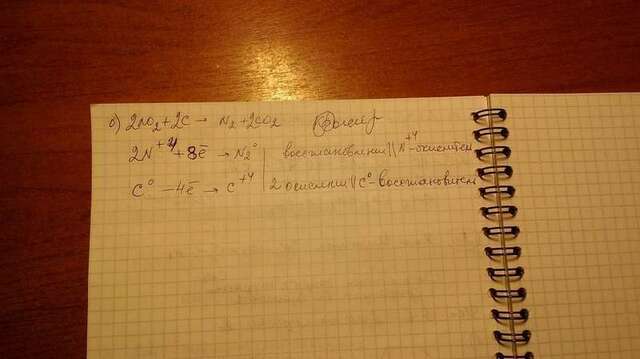 б) 2NO₂+2C → N₂+2CO₂
2N⁺⁴+8ē → N₂⁰ | восстановлении || N⁺⁴-окислител
C⁰ -4ē → C⁺⁴ | 2 окислении || C⁰-восстановител